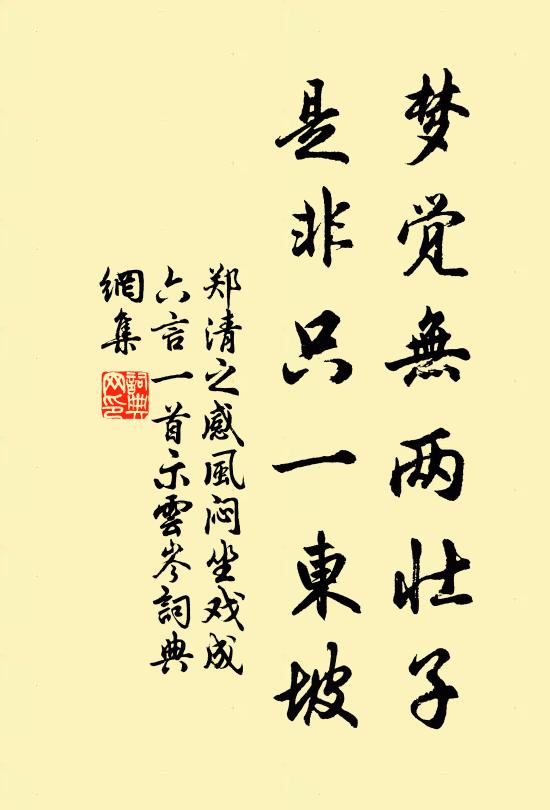 梦觉無两壮子
是非只一東坡
郑清之感風闷坐戏成
六言一首示雲岑詞典
網集
詞典
网印